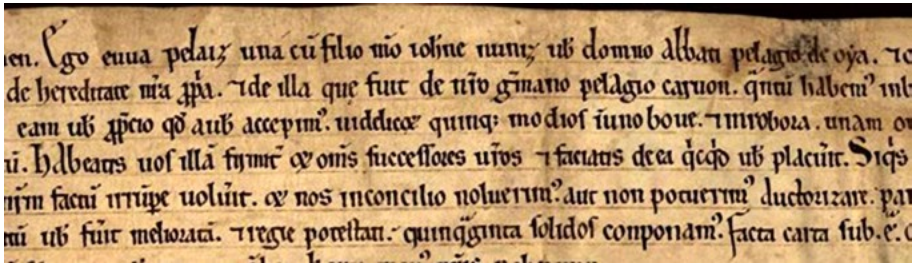 en. Ego euua pelaiz una cū filio mō iohne nuniz ub̄ domno abbati pelagio de oya. ⁊ c
de hereditate mr̄a ꝓp̄a. ⁊ de illa que fuit de nr̄o gm̄ano pelagio caruon. q̄ntū habem᷒ inb
eam ub̄ p̄cio qd̄ a uob̄ accepim᷒. uidelicꝫ quinqꝫ modios ī uno boue. ⁊ in robora. unam
ū. habeatis uos illā firmit̄ ⁊ om̄s successores ur̄os ⁊ faciatis de ea q̇cq̇d ub̄ placuīt. Siq̇s
factū irrūpe uoluīt. nos in concilio noluerim᷒ aut non potuerim᷒ auctorizare. par
ub̄ fuīt melioratū. ⁊ regie potestati. quinq̄ginta solidos conponam᷒. facta carta sub. e᷒.